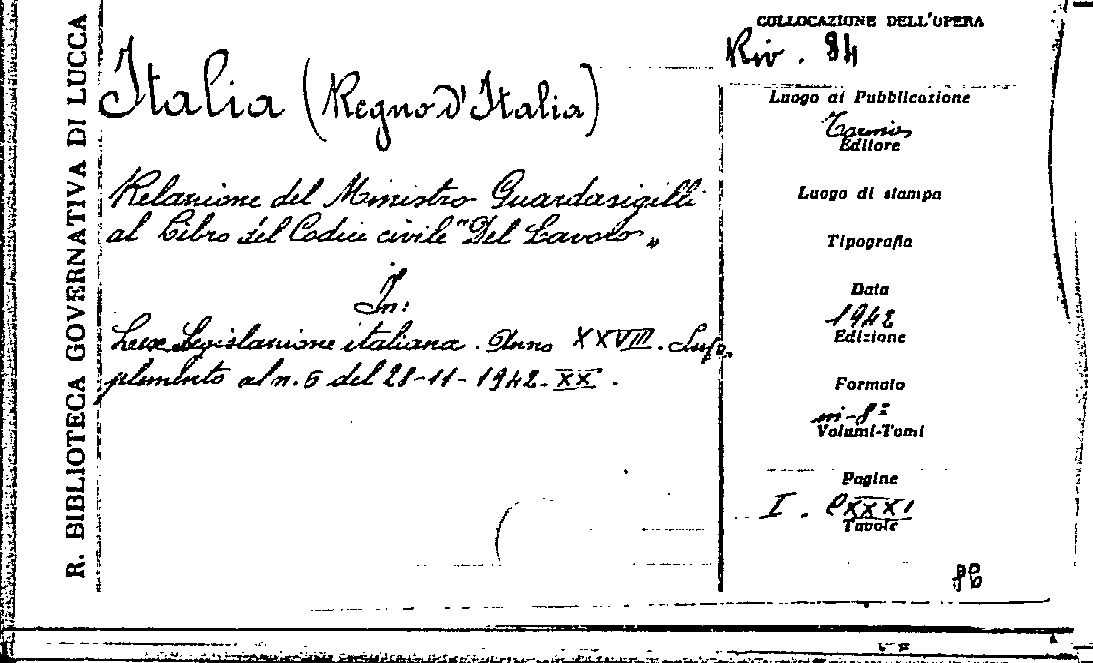 R. BIBLIOTECA GOVERNATIVA DI LUCCA
Italia (Regno d'Italia)
Relazione del Ministro Guardasigilli
al Libro del Codice civile "Del Lavoro„
In:
Lex Legislazione italiana. Anno XXVIII. Sup-
plemento al n. 5 del 28-11-1942-XX.
COLLOCAZIONE DELL'OPERA
Riv. 84
Luogo di Pubblicazione
Torino
Editore
Luogo di stampa
Tipografia
Data
1942
Edizione
Formato
in-8º
Volumi-Tomi
Pagine
I. CXXXI
Tavole